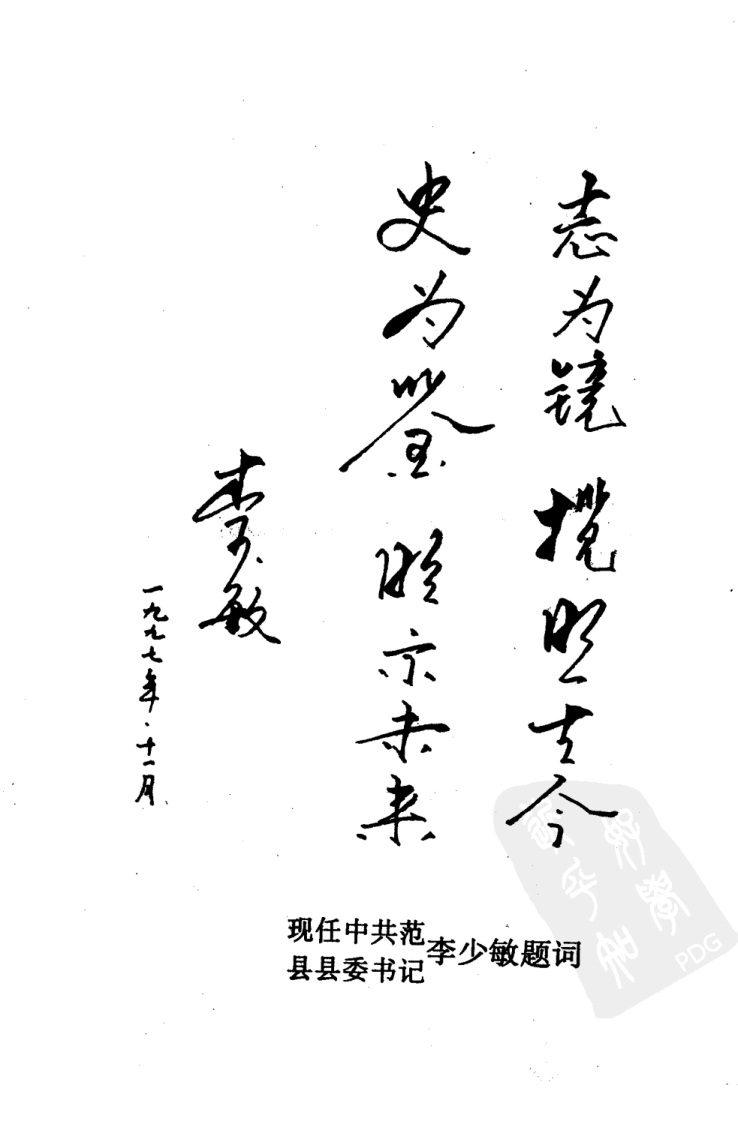 志为镜 揽照古今
史为鉴 昭示未来
李少敏
一九九七年·十一月
现任中共范
县县委书记
李少敏题词
PDG